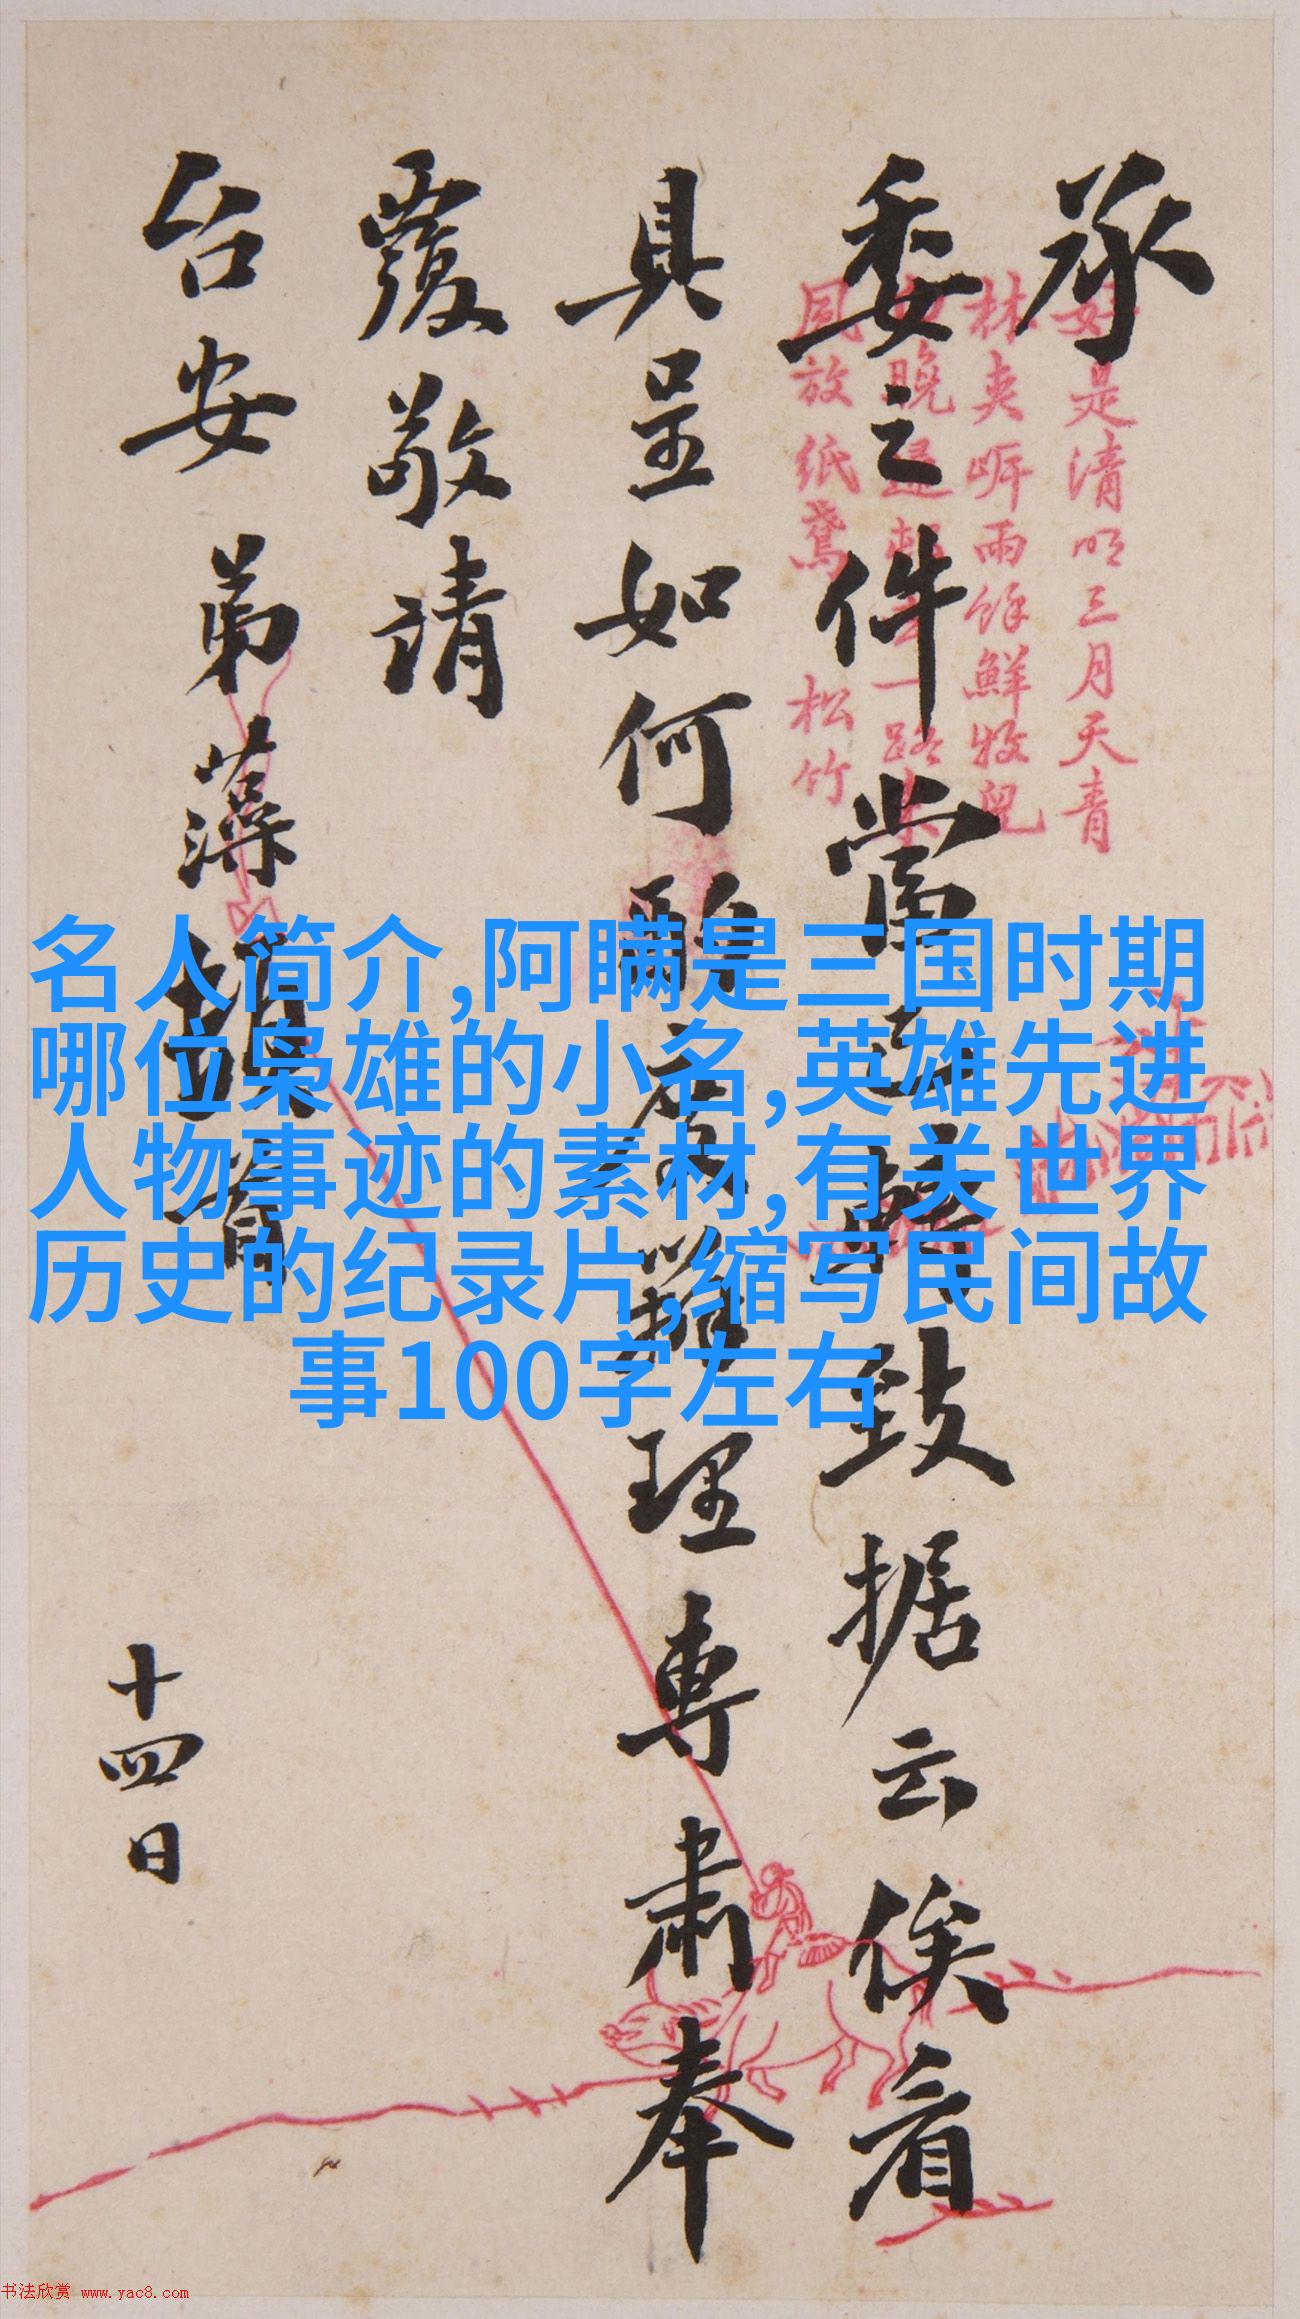 承
委之件當已轉致据云俟看
具呈如何辦理專肅奉
覆敬請
台安 弟藻頓首
十四日
好是清明三月天青
林夾岸雨餘鮮牧兒
晚歸一路
同放紙鳶 松竹
名人简介,阿瞒是三国时期
哪位枭雄的小名,英雄先进
人物事迹的素材,有关世界
历史的纪录片,缩写民间故
事100字左右
书法欣赏 www.yac8.com